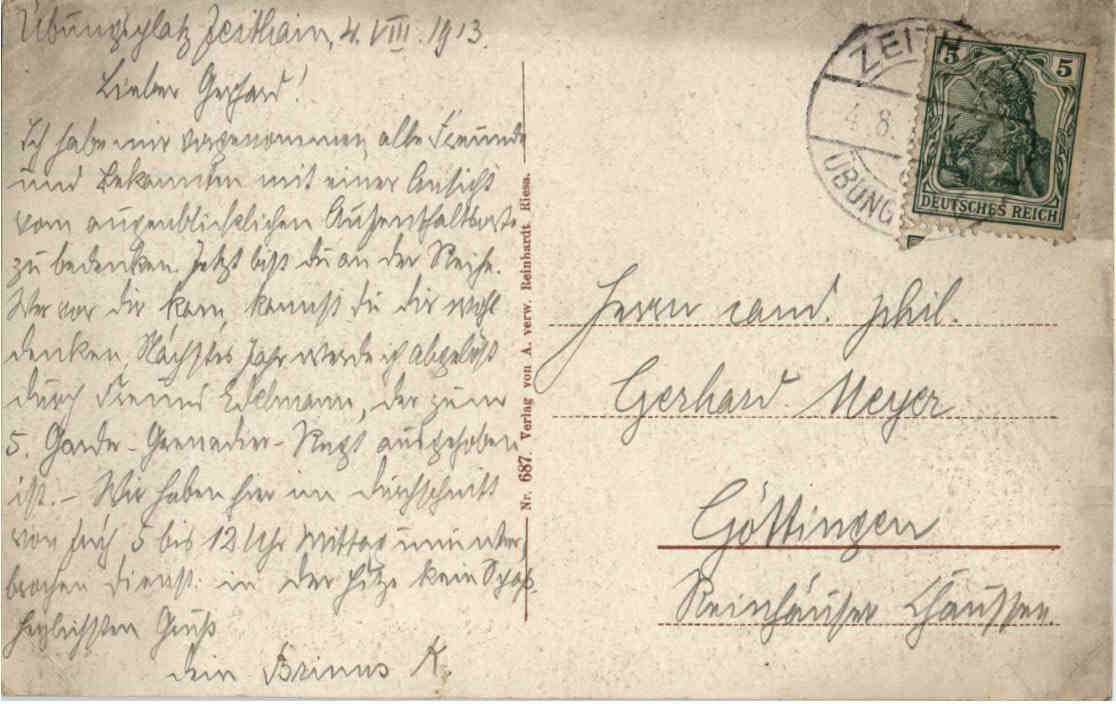 Übungsplatz Zeithain, 4. VIII. 1913.
Lieber Gerhard!
Ich habe mir vorgenommen, alle Freunde
und Bekannten mit einer Ansicht
vom augenblicklichen Aufenthaltsorte
zu bedenken. Jetzt bist du an der Reihe.
Wer vor dir kam, kannst du dir wohl
denken. Nächstes Jahr werde ich abgelöst
durch Freund Edelmann, der zum
5. Garde-Grenadier-Regt ausgehoben
ist. - Wir haben hier im Durchschnitt
von früh 5 bis 12 Uhr Mittag ununter
brochen Dienst. in der Hitze kein Spaß.
Herzlichsten Gruß
dein K.
Nr. 687. Verlag von A. verw. Reinhardt. Riesa.
ZEITH
4.8.
ÜBUNG
5 5
DEUTSCHES REICH
Herrn cand. phil.
Gerhard Meyer
Göttingen
Reinhäuser Chaussee